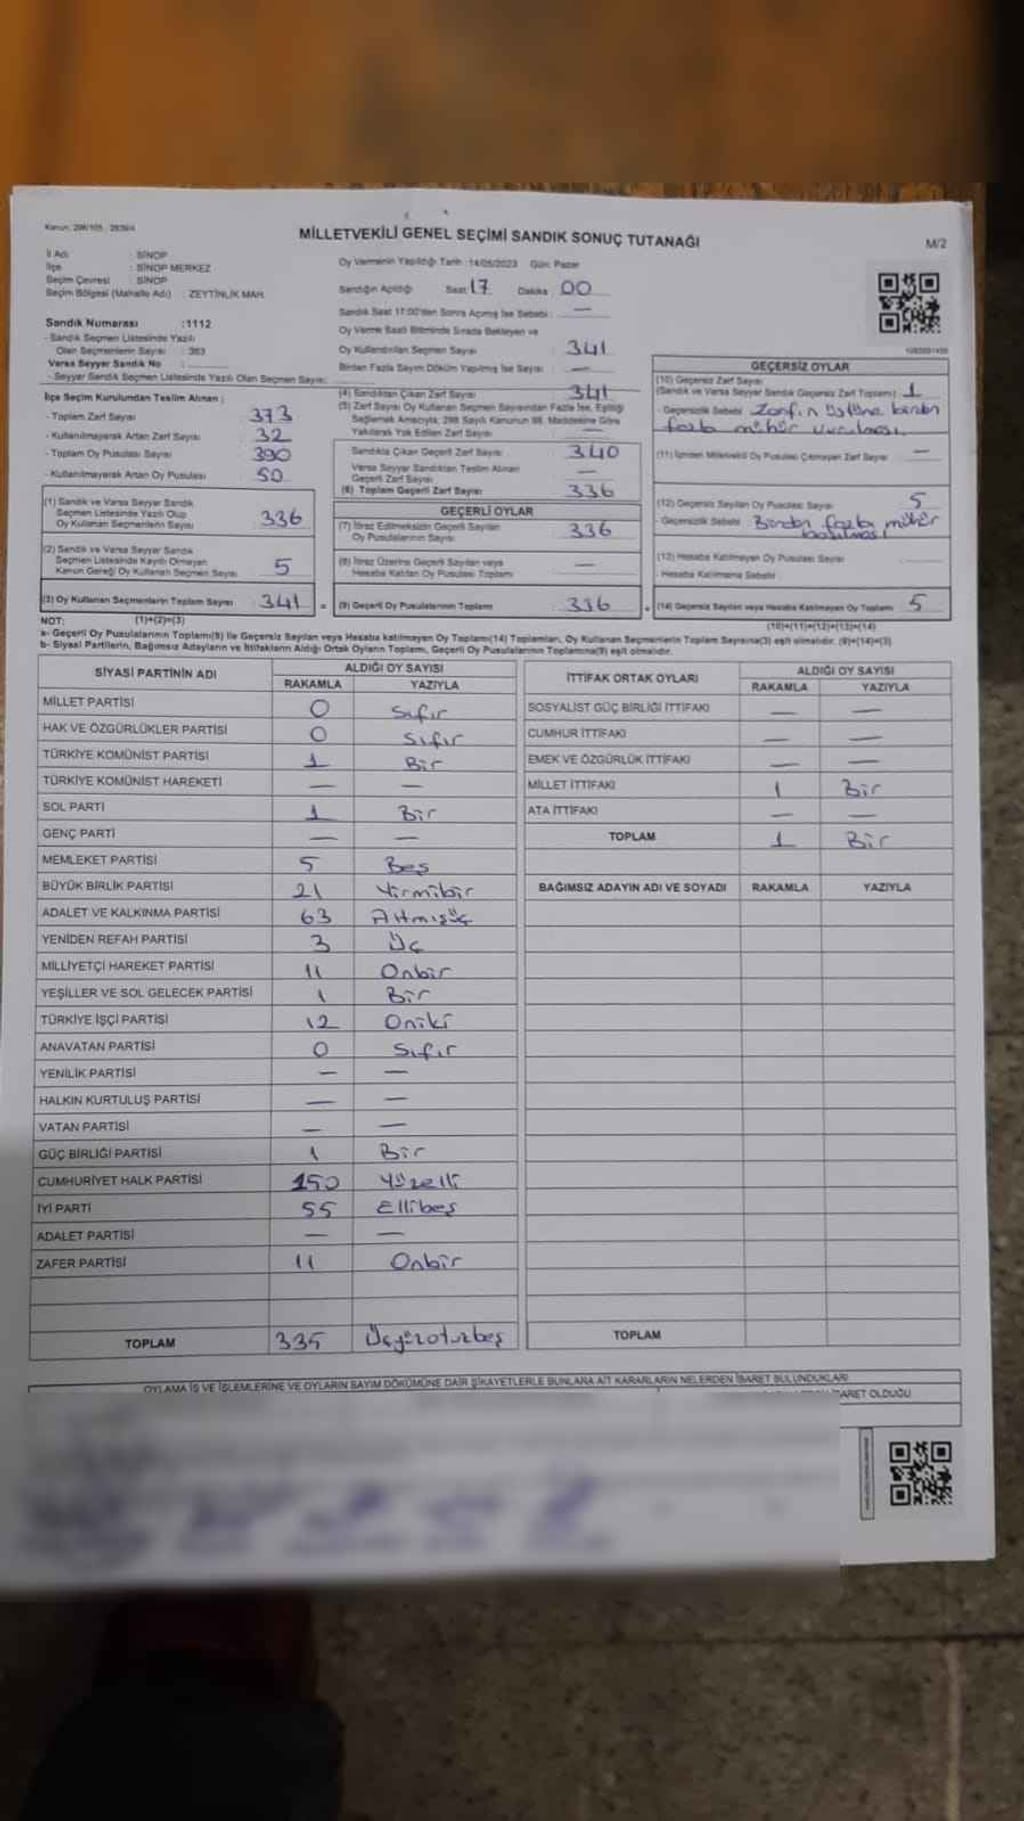 MİLLETVEKİLİ GENEL SEÇİMİ SANDIK SONUÇ TUTANAĞI
M/2
İl Adı : SİNOP
İlçe : SİNOP MERKEZ
Seçim Çevresi : SİNOP
Seçim Bölgesi (Mahalle Adı) : ZEYTİNLİK MAH.
Sandık Numarası :1112
- Sandık Seçmen Listesinde Yazılı
Olan Seçmenlerin Sayısı : 363
Varsa Seyyar Sandık No :
- Seyyar Sandık Seçmen Listesinde Yazılı Olan Seçmen Sayısı:
Oy Vermenin Yapıldığı Tarih :14/05/2023 Gün: Pazar
Sandığın Açıldığı Saat 17 Dakika 00
Sandık Saat 17:00'den Sonra Açılmış İse Sebebi : —
Oy Verme Saati Bitiminde Sırada Bekleyen ve
Oy Kullandırılan Seçmen Sayısı : 341
Birden Fazla Sayım Döküm Yapılmış İse Sayısı : —
İlçe Seçim Kurulundan Teslim Alınan :
- Toplam Zarf Sayısı 373
- Kullanılmayarak Artan Zarf Sayısı 32
- Toplam Oy Pusulası Sayısı 390
- Kullanılmayarak Artan Oy Pusulası 50
(1) Sandık ve Varsa Seyyar Sandık
Seçmen Listesinde Yazılı Olup
Oy Kullanan Seçmenlerin Sayısı 336
(2) Sandık ve Varsa Seyyar Sandık
Seçmen Listesinde Kayıtlı Olmayan
Kanun Gereği Oy Kullanan Seçmen Sayısı 5
(3) Oy Kullanan Seçmenlerin Toplam Sayısı 341 =
(1)+(2)=(3)
(4) Sandıktan Çıkan Zarf Sayısı 341
(5) Zarf Sayısı Oy Kullanan Seçmen Sayısından Fazla İse, Eşitliği
Sağlamak Amacıyla, 298 Sayılı Kanunun 98. Maddesine Göre
Yakılarak Yok Edilen Zarf Sayısı —
Sandıkta Çıkan Geçerli Zarf Sayısı 340
Varsa Seyyar Sandıktan Teslim Alınan
Geçerli Zarf Sayısı —
(6) Toplam Geçerli Zarf Sayısı 336
GEÇERLİ OYLAR
(7) İtiraz Edilmeksizin Geçerli Sayılan
Oy Pusulalarının Sayısı 336
(8) İtiraz Üzerine Geçerli Sayılan veya
Hesaba Katılan Oy Pusulası Toplamı —
(9) Geçerli Oy Pusulalarının Toplamı 336 +
GEÇERSİZ OYLAR
(10) Geçersiz Zarf Sayısı
(Sandık ve Varsa Seyyar Sandık Geçersiz Zarf Toplamı) 1
- Geçersizlik Sebebi Zarfın üstüne birden
fazla mühür vurulması
(11) İçinden Milletvekili Oy Pusulası Çıkmayan Zarf Sayısı —
(12) Geçersiz Sayılan Oy Pusulası Sayısı 5
- Geçersizlik Sebebi Birden fazla mühür
basılması
(13) Hesaba Katılmayan Oy Pusulası Sayısı
- Hesaba Katılmama Sebebi
(14) Geçersiz Sayılan veya Hesaba Katılmayan Oy Toplamı 5
(10)+(11)+(12)+(13)=(14)
NOT:
a- Geçerli Oy Pusulalarının Toplamı(9) ile Geçersiz Sayılan veya Hesaba katılmayan Oy Toplamı(14) Toplamları, Oy Kullanan Seçmenlerin Toplam Sayısına(3) eşit olmalıdır. (9)+(14)=(3)
b- Siyasi Partilerin, Bağımsız Adayların ve İttifakların Aldığı Ortak Oyların Toplamı, Geçerli Oy Pusulalarının Toplamına(9) eşit olmalıdır.
SİYASİ PARTİNİN ADI ALDIĞI OY SAYISI
RAKAMLA YAZIYLA
MİLLET PARTİSİ 0 Sıfır
HAK VE ÖZGÜRLÜKLER PARTİSİ 0 Sıfır
TÜRKİYE KOMÜNİST PARTİSİ 1 Bir
TÜRKİYE KOMÜNİST HAREKETİ — —
SOL PARTİ 1 Bir
GENÇ PARTİ — —
MEMLEKET PARTİSİ 5 Beş
BÜYÜK BİRLİK PARTİSİ 21 Yirmibir
ADALET VE KALKINMA PARTİSİ 63 Altmışüç
YENİDEN REFAH PARTİSİ 3 Üç
MİLLİYETÇİ HAREKET PARTİSİ 11 Onbir
YEŞİLLER VE SOL GELECEK PARTİSİ 1 Bir
TÜRKİYE İŞÇİ PARTİSİ 12 Oniki
ANAVATAN PARTİSİ 0 Sıfır
YENİLİK PARTİSİ — —
HALKIN KURTULUŞ PARTİSİ — —
VATAN PARTİSİ — —
GÜÇ BİRLİĞİ PARTİSİ 1 Bir
CUMHURİYET HALK PARTİSİ 150 Yüzelli
İYİ PARTİ 55 Ellibeş
ADALET PARTİSİ — —
ZAFER PARTİSİ 11 Onbir
TOPLAM 335 Üçyüzotuzbeş
İTTİFAK ORTAK OYLARI ALDIĞI OY SAYISI
RAKAMLA YAZIYLA
SOSYALİST GÜÇ BİRLİĞİ İTTİFAKI — —
CUMHUR İTTİFAKI — —
EMEK VE ÖZGÜRLÜK İTTİFAKI — —
MİLLET İTTİFAKI 1 Bir
ATA İTTİFAKI — —
TOPLAM 1 Bir
BAĞIMSIZ ADAYIN ADI VE SOYADI RAKAMLA YAZIYLA
TOPLAM
OYLAMA İŞ VE İŞLEMLERİNE VE OYLARIN SAYIM DÖKÜMÜNE DAİR ŞİKAYETLERLE BUNLARA AİT KARARLARIN NELERDEN İBARET BULUNDUKLARI
OLDUĞU